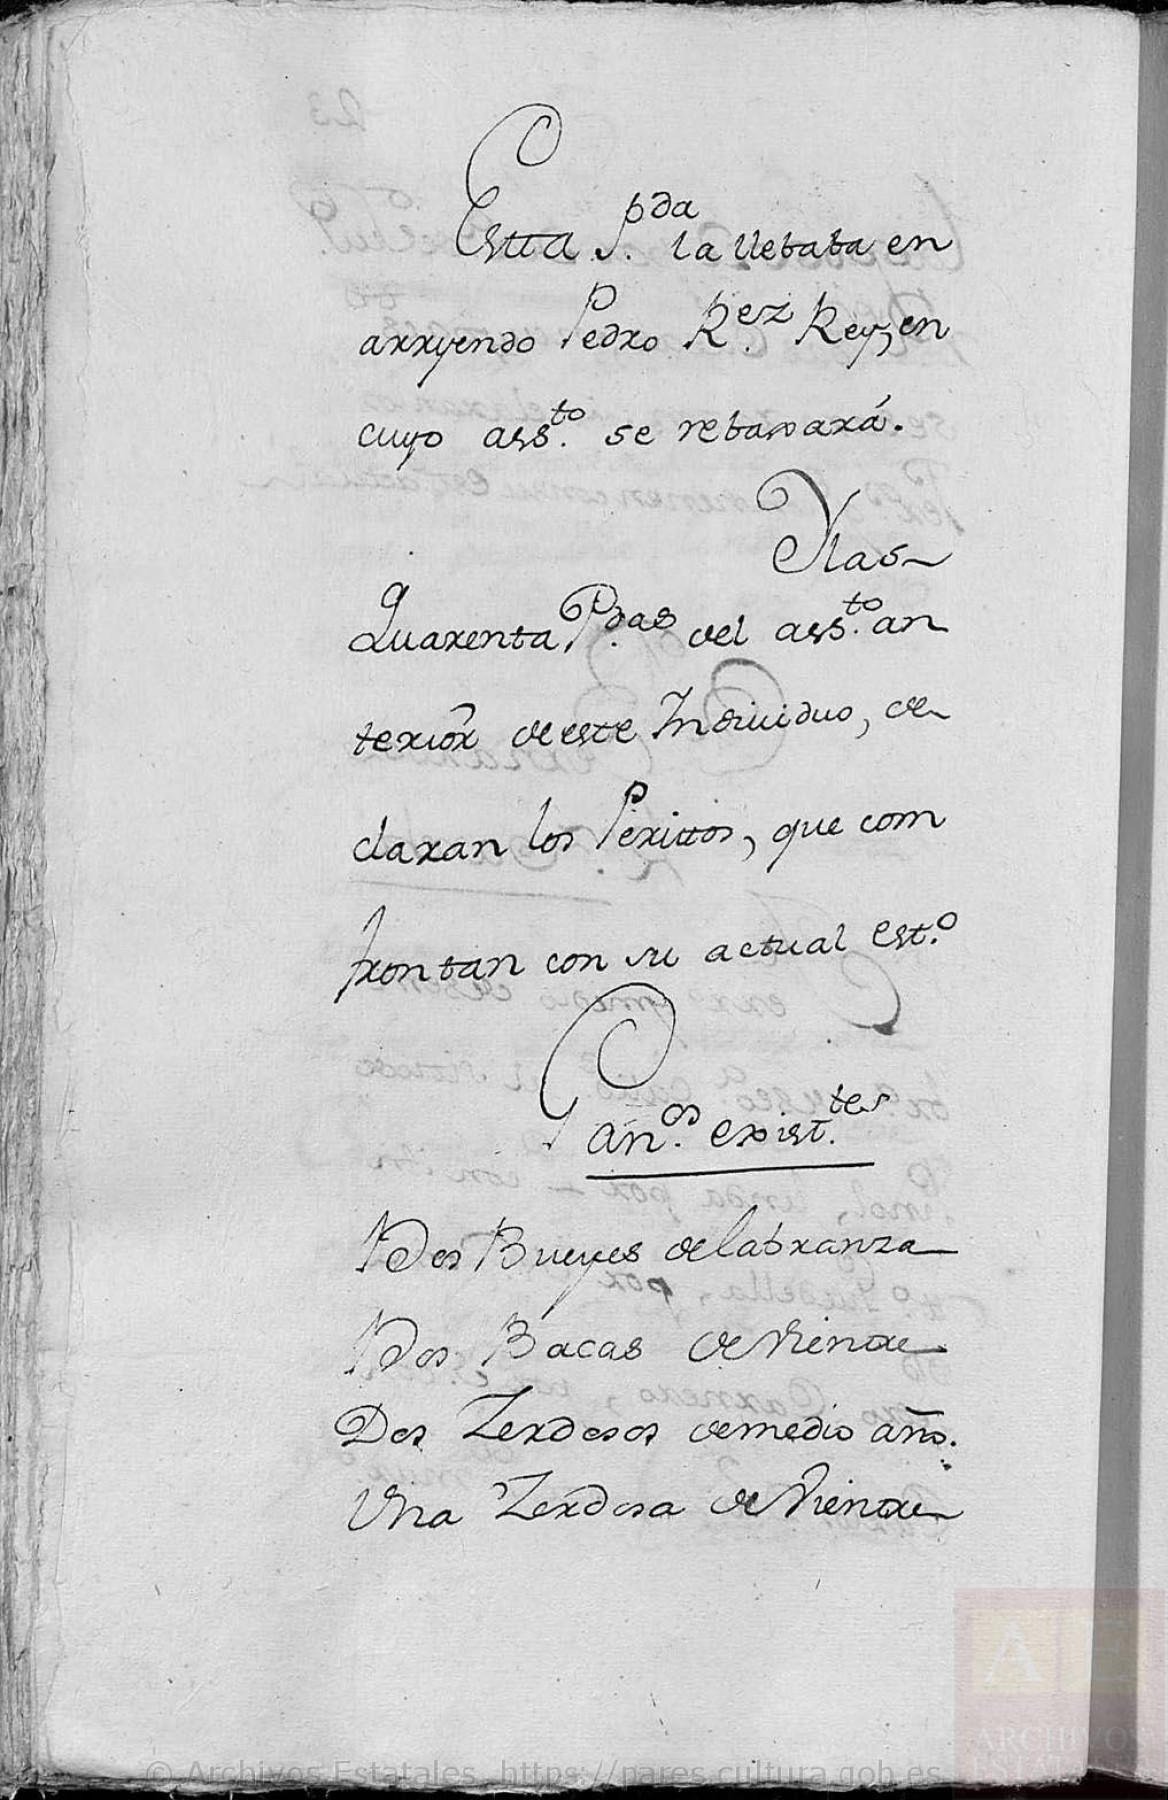 Estta P.da la llebaba en
arryendo Pedro R.ez Rey, en
cuyo ass.to se rebaxará.
Ylas
Quarenta P.das del ass.to an
terior de este Individuo, de
claran los Perittos, que com
frontan con su actual est.o
Gan.os exist.tes
Dos Bueyes de labranza
Dos Bacas de Vientre
Dos Zerdosos de medio año.
Una Zerdosa de Vientre
© Archivos Estatales, https://pares.cultura.gob.es
AE
ARCHIVOS
ESTATALES